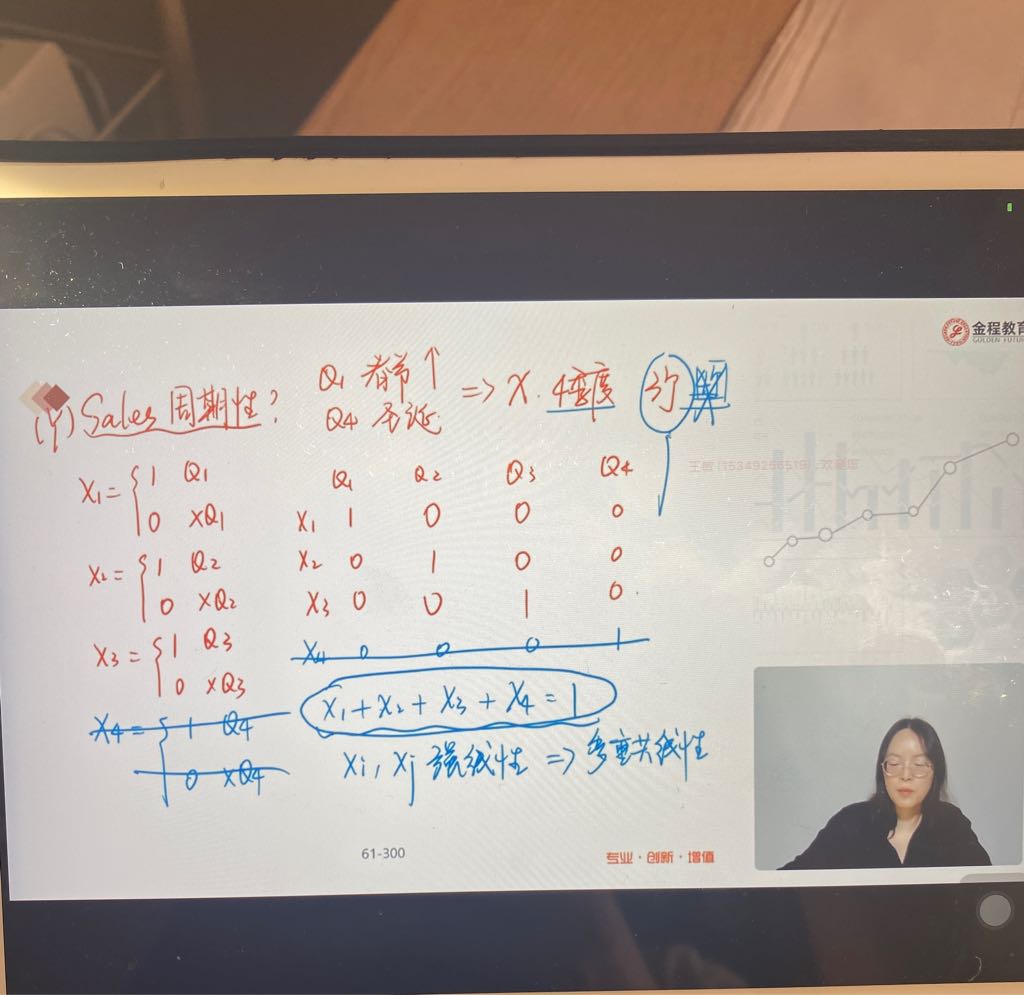 金程教育
GOLDEN FUTU
(Y) Sales 周期性?
Q1 春节 ↑
Q4 圣诞
=> X. 4季度
X1 = { 1 Q1
0 ×Q1
X2 = { 1 Q2
0 ×Q2
X3 = { 1 Q3
0 ×Q3
X4 = { 1 Q4
0 ×Q4
Q1 Q2 Q3 Q4
X1 1 0 0 0
X2 0 1 0 0
X3 0 0 1 0
X4 0 0 0 1
X1 + X2 + X3 + X4 = 1
Xi, Xj 强线性 => 多重共线性
61-300
专业·创新·增值